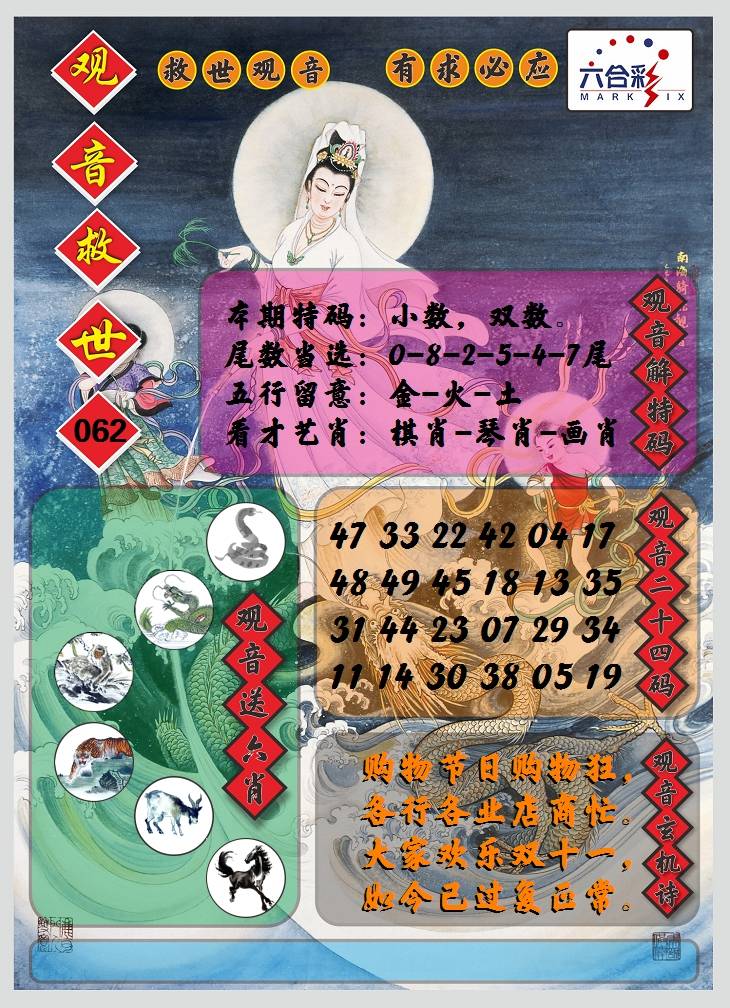 救世观音 有求必应
六合彩
MARK SIX
观音救世
062
本期特码：小数，双数。
尾数当选：0-8-2-5-4-7尾
五行留意：金-火-土
看才艺肖：棋肖-琴肖-画肖
观音解特码
47 33 22 42 04 17
48 49 45 18 13 35
31 44 23 07 29 34
11 14 30 38 05 19
观音二十四码
观音送六肖
购物节日购物狂，
各行各业店商忙。
大家欢乐双十一，
如今已过复正常。
观音玄机诗